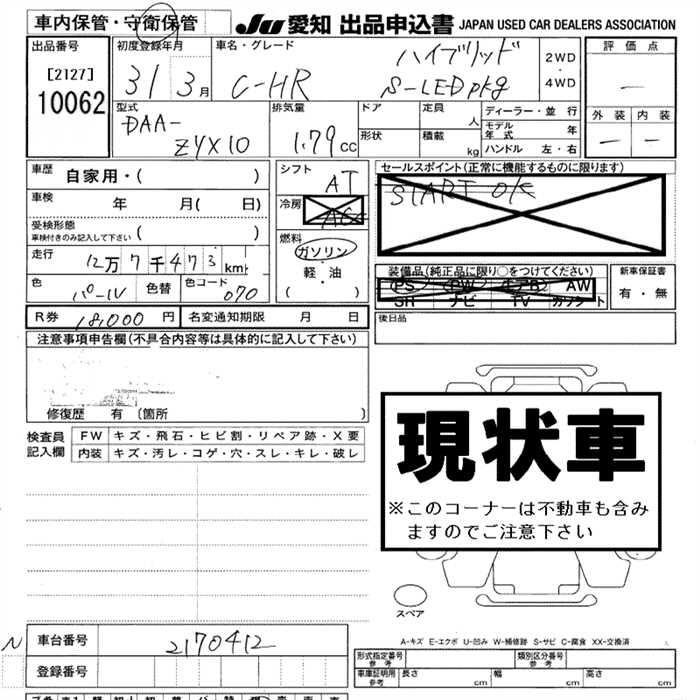 車内保管・守衛保管
JU 愛知 出品申込書 JAPAN USED CAR DEALERS ASSOCIATION
出品番号
[2127]
10062
初度登録年月
31 3月
車名・グレード
C-HR
ハイブリッド
S-LED pkg
2WD
・
4WD
評価点
―
外装 内装
― ―
型式
DAA-
ZYX10
排気量
1.79cc
ドア
形状
定員 人
積載 kg
ディーラー・並行
モデル年式 年
ハンドル 左・右
車歴 自家用・( )
車検 年 月( 日)
受検形態
車検付きのみ記入して下さい ( )
走行 12万7千473km
色 パール 色替 色コード 070
シフト
AT
冷房
AC
燃料
ガソリン
・
軽・油
( )
セールスポイント(正常に機能するものに限ります)
START o/c
装備品(純正品に限り○をつけてください)
PS PW エアB AW
SR ナビ TV カワシート
新車保証書
有・無
R券 18,000円 名変通知期限 月 日
後日品
注意事項申告欄(不具合内容等は具体的に記入して下さい)
修復歴 有 〔箇所 〕
検査員記入欄
FW キズ・飛石・ヒビ割・リペア跡・X要
内装 キズ・汚レ・コゲ・穴・スレ・キレ・破レ
現状車
※このコーナーは不動車も含み
ますのでご注意下さい
スペア
A-キズ E-エクボ U-凹み W-補修跡 S-サビ C-腐食 XX-交換済
N 車台番号 2170412
登録番号
形式指定番号 参考
類別区分番号 参考
車庫証明用 参考 長さ cm 幅 cm 高さ cm